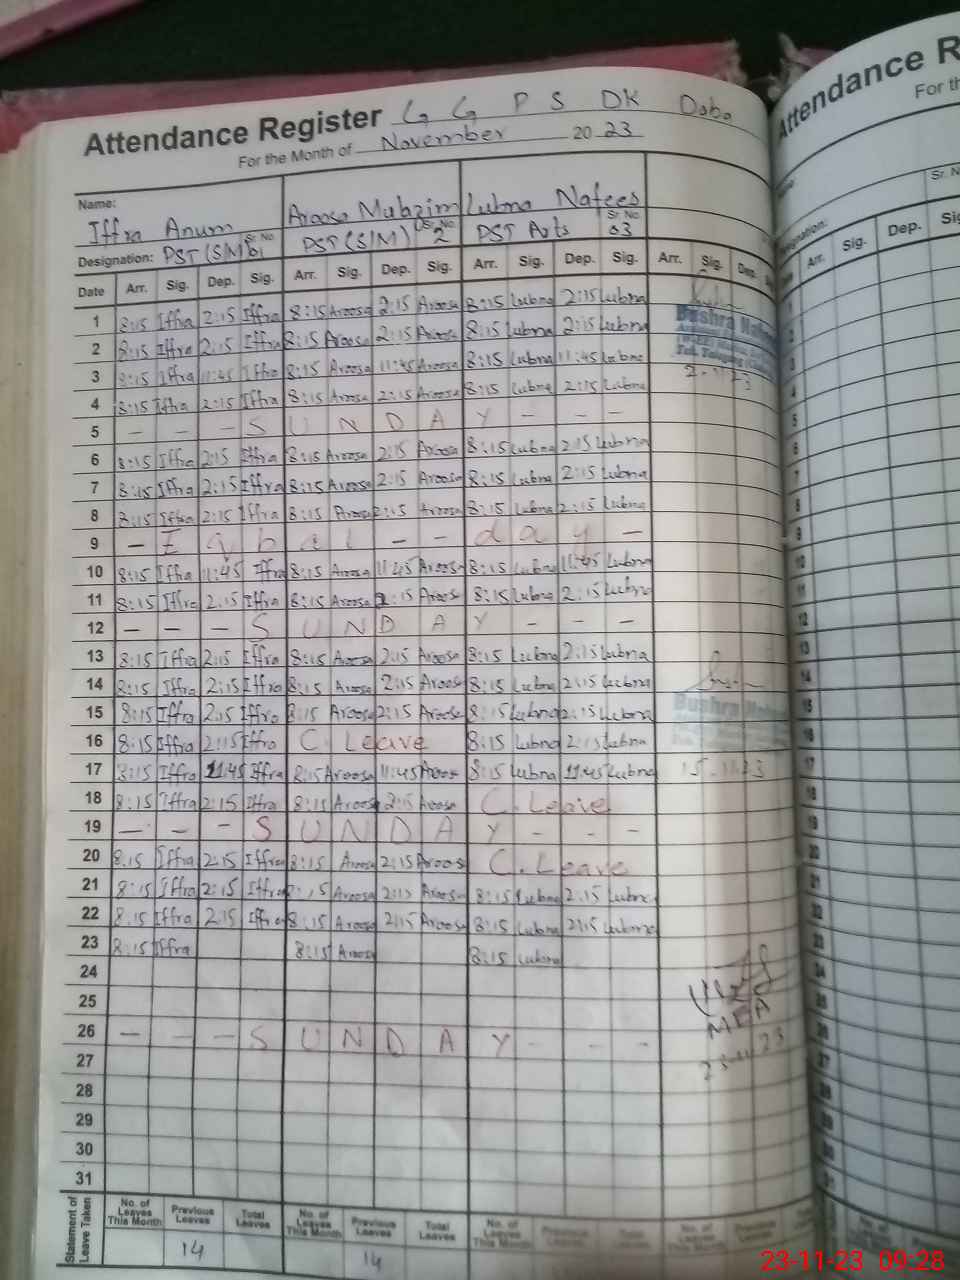 Attendance Register G G P S DK Daba
For the Month of November 20 23
Name: Iffra Anum Aroosa Mubzim Lubna Nafees
Designation: PST (S/M) Sr. No 01 PST (S/M) Sr. No 2 PST Arts Sr. No 03
Date Arr. Sig. Dep. Sig. Arr. Sig. Dep. Sig. Arr. Sig. Dep. Sig. Arr. Sig. Dep.
1 8:15 Iffra 2:15 Iffra 8:15 Aroosa 2:15 Aroosa 8:15 Lubna 2:15 Lubna
2 8:15 Iffra 2:15 Iffra 8:15 Aroosa 2:15 Aroosa 8:15 Lubna 2:15 Lubna
Bushra
3 8:15 Iffra 11:45 Iffra 8:15 Aroosa 11:45 Aroosa 8:15 Lubna 11:45 Lubna
2-11-23
4 8:15 Iffra 2:15 Iffra 8:15 Aroosa 2:15 Aroosa 8:15 Lubna 2:15 Lubna
5 - - - S U N D A Y - - -
6 8:15 Iffra 2:15 Iffra 8:15 Aroosa 2:15 Aroosa 8:15 Lubna 2:15 Lubna
7 8:15 Iffra 2:15 Iffra 8:15 Aroosa 2:15 Aroosa 8:15 Lubna 2:15 Lubna
8 8:15 Iffra 2:15 Iffra 8:15 Aroosa 2:15 Aroosa 8:15 Lubna 2:15 Lubna
9 - I q b a l - - d a y -
10 8:15 Iffra 11:45 Iffra 8:15 Aroosa 11:45 Aroosa 8:15 Lubna 11:45 Lubna
11 8:15 Iffra 2:15 Iffra 8:15 Aroosa 2:15 Aroosa 8:15 Lubna 2:15 Lubna
12 - - - S U N D A Y - - -
13 8:15 Iffra 2:15 Iffra 8:15 Aroosa 2:15 Aroosa 8:15 Lubna 2:15 Lubna
14 8:15 Iffra 2:15 Iffra 8:15 Aroosa 2:15 Aroosa 8:15 Lubna 2:15 Lubna
15 8:15 Iffra 2:15 Iffra 8:15 Aroosa 2:15 Aroosa 8:15 Lubna 2:15 Lubna
Bushra
16 8:15 Iffra 2:15 Iffra C. Leave 8:15 Lubna 2:15 Lubna
17 8:15 Iffra 11:45 Iffra 8:15 Aroosa 11:45 Aroos 8:15 Lubna 11:45 Lubna 15-11-23
18 8:15 Iffra 2:15 Iffra 8:15 Aroosa 2:15 Aroosa C. Leave
19 - - - S U N D A Y - - -
20 8:15 Iffra 2:15 Iffra 8:15 Aroosa 2:15 Aroosa C. Leave
21 8:15 Iffra 2:15 Iffra 8:15 Aroosa 2:15 Aroosa 8:15 Lubna 2:15 Lubna
22 8:15 Iffra 2:15 Iffra 8:15 Aroosa 2:15 Aroosa 8:15 Lubna 2:15 Lubna
23 8:15 Iffra 8:15 Aroosa 8:15 Lubna
24
25
MEA
26 - - - S U N D A Y - - -
23-11-23
27
28
29
30
31
Statement of Leave Taken
No. of Leaves This Month Previous Leaves Total Leaves No. of Leaves This Month Previous Leaves Total Leaves No. of Leaves This Month Previous Leaves Total Leaves No. of Leaves This Month
14 14
Attendance R
For th
Sr. N
Designation:
Arr. Sig. Dep. Sig
23-11-23 09:28